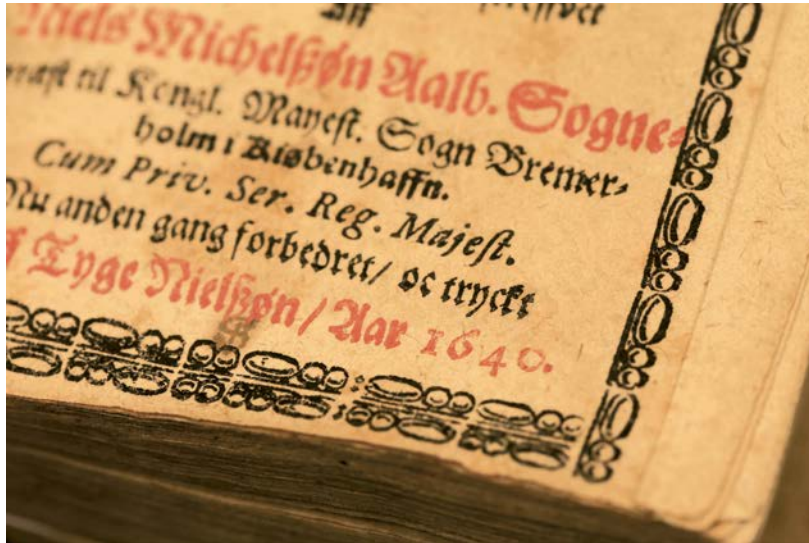 Aff
Niels Michelßøn Aalb. Sogne⸗
præst til Kongl. Mayest. Sogn Bremer⸗
holm i Kiøbenhaffn.
Cum Priv. Ser. Reg. Majest.
Nu anden gang forbedret/ oc tryckt
Tyge Nielßøn/ Aar 1640.